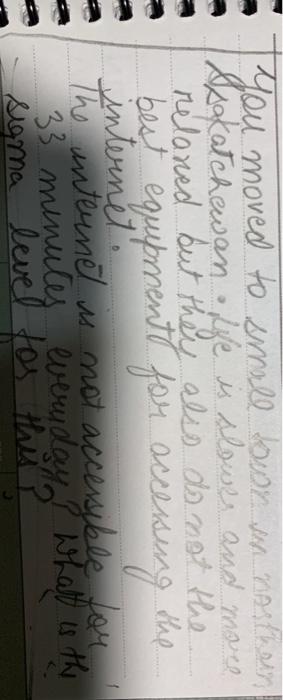 You moved to small town in northern
Saskatchewan. Life is slower and more
relaxed but they also do not the
best equipment for accessing the
internet.
The internet is not accessible for
33 minutes everyday? What is the
sigma level for this?